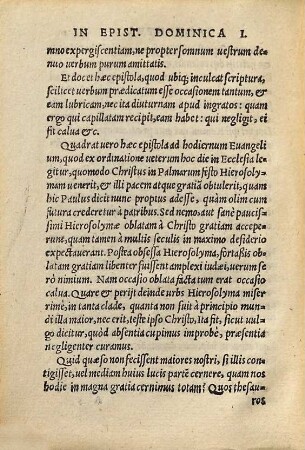 IN EPIST. DOMINICA I.
mno expergiscentiam, ne propter somnum uestrum de
nuo uerbum purum amittatis.
Et docet hæc epistola, quod ubiq; inculcat scriptura,
scilicet uerbum prædicatum esse occasionem tantum, &
eam lubricam, nec ita diuturnam apud ingratos: quam
ergo qui capillatam recipit, eam habet: qui negligit, ei
fit calua &c.
Quadrat uero hæc epistola ad hodiernum Euangeli
um, quod ex ordinatione ueterum hoc die in Ecclesia le
gitur, quomodo Christus in Palmarum festo Hierosoly
mam uenerit, & illi pacem atque gratiā obtulerit, quam
hic Paulus dicit nunc propius adesse, quàm olim cum
futura crederetur à patribus. Sed nemo, aut sanè paucis
simi Hierosolymæ oblatam à Christo gratiam accepe
runt, quam tamen à multis seculis in maximo desiderio
expectauerant. Postra obsessa Hierosolyma, fortaßis ob
latam gratiam libenter fuissent amplexi iudæi, uerum se
rò nimium. Nam oblatio facta tum erat occasio
calua. Quare & perijt deinde urbs Hierosolyma mise
rimè, in tanta clade, quanta non fuit à principio mun
di illa maior, nec erit, teste ipso Christo, Ita fit, ficut uul-
go dicitur, quòd absentia cupimus improbè, præsentia
negligenter curamus.
Quid quæso non fecissent maiores nostri, si illis con
tigisset, uel mediam huius lucis partē cernere, quam nos
hodie in magna gratia cernimus totam? Quos thesau-
ros